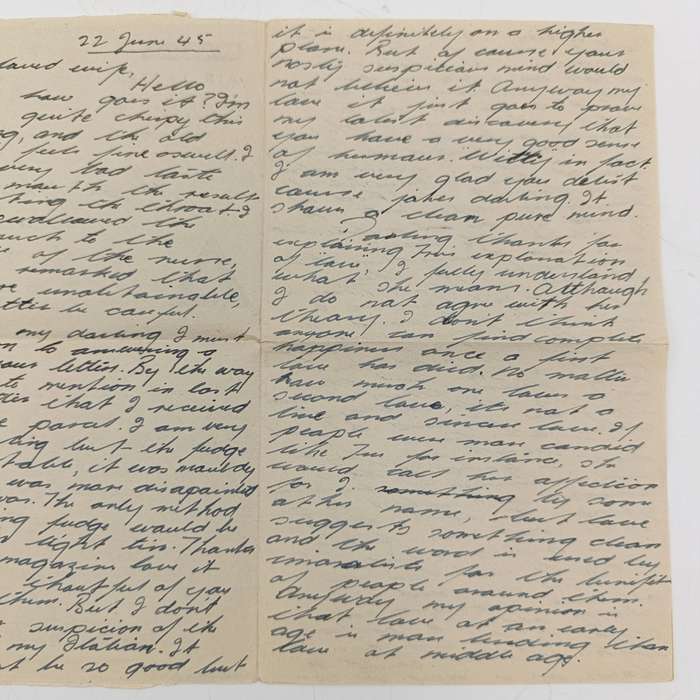 22 June 45
loved wife,
Hello
how goes it? I'm
quite chirpy this
and the old
feels fine as well. I
very bad taste
mouth the result
ting the throat I
swallowed the
much to the
of the nurse,
remarked that
unobtainable,
better be careful.
my darling I must
on to answering a
your letters. By the way
to mention in last
that I received
parcel. I am very
but the fudge
table, it was mouldy
was more disappointed
was. The only method
ing fudge would be
light tin. Thanks
magazine love it
thoughtful of you
them. But I don't
suspicion of the
my Italian. It
be so good but
it is definitely on a higher
plane. But of course your
nasty suspicious mind would
not believe it. Anyway my
love it just goes to prove
my latest discovery that
you have a very good sense
of humour. Witty in fact.
I am very glad you detest
course jokes darling. It
shows a clean pure mind.
Darling thanks for
explaining Tru's explanation
of love, I fully understand
what she means. Although
I do not agree with her
theory. I don't think
anyone can find complete
happiness once a first
love has died. No matter
how much one loves a
second love, it's not a
true and sincere love. If
people were more candid
like Tru for instance, she
would call her affection
for J. something by some
other name, but love
suggests something clean
and the word is used by
imoralists for the benifit
of people around them.
Anyway my opinion is
that love at an early
age is more binding than
love at middle age.